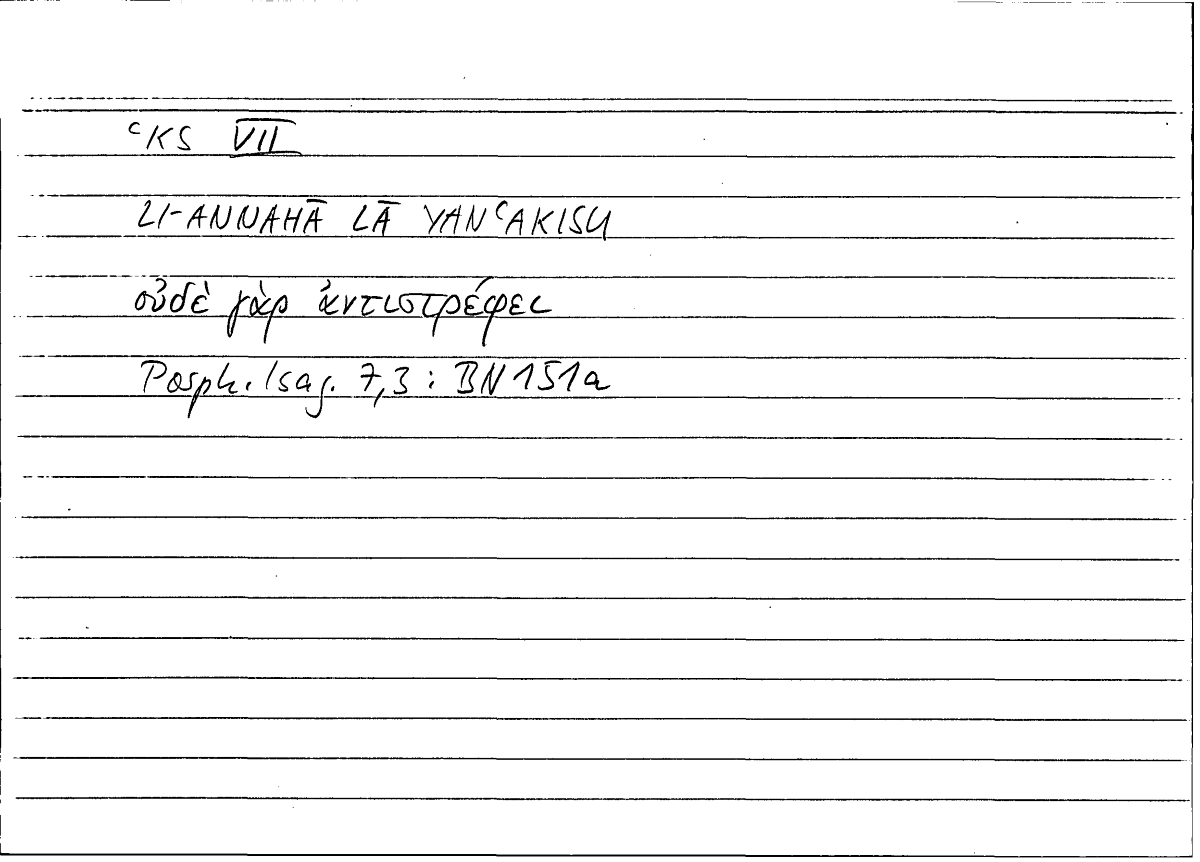 ʿKS VII
LI-ANNAHĀ LĀ YANʿAKISU
οὐδὲ γὰρ ἀντιστρέφει
Porph. Isag. 7,3 : BN 151a